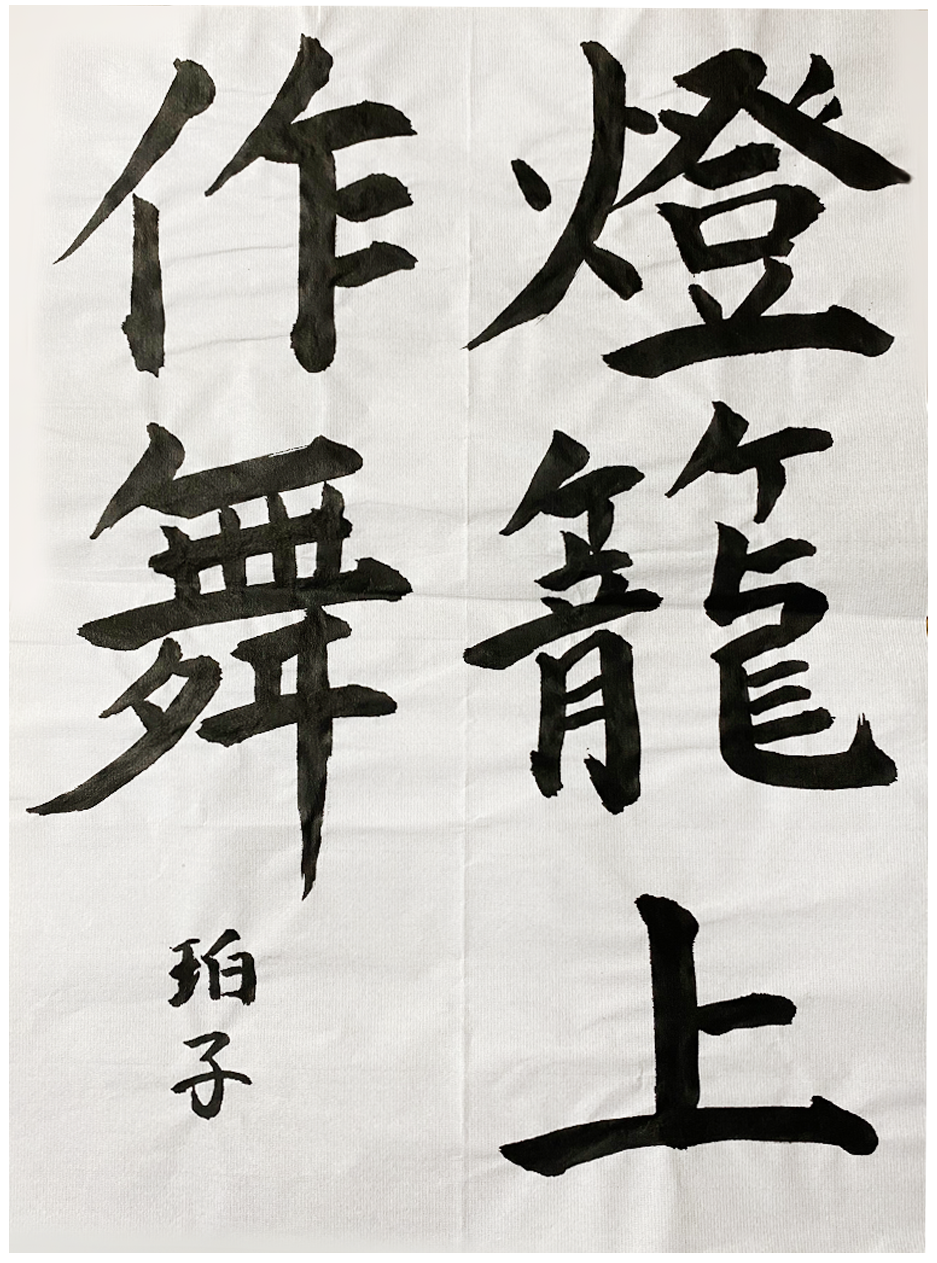 燈籠上
作舞
珀子